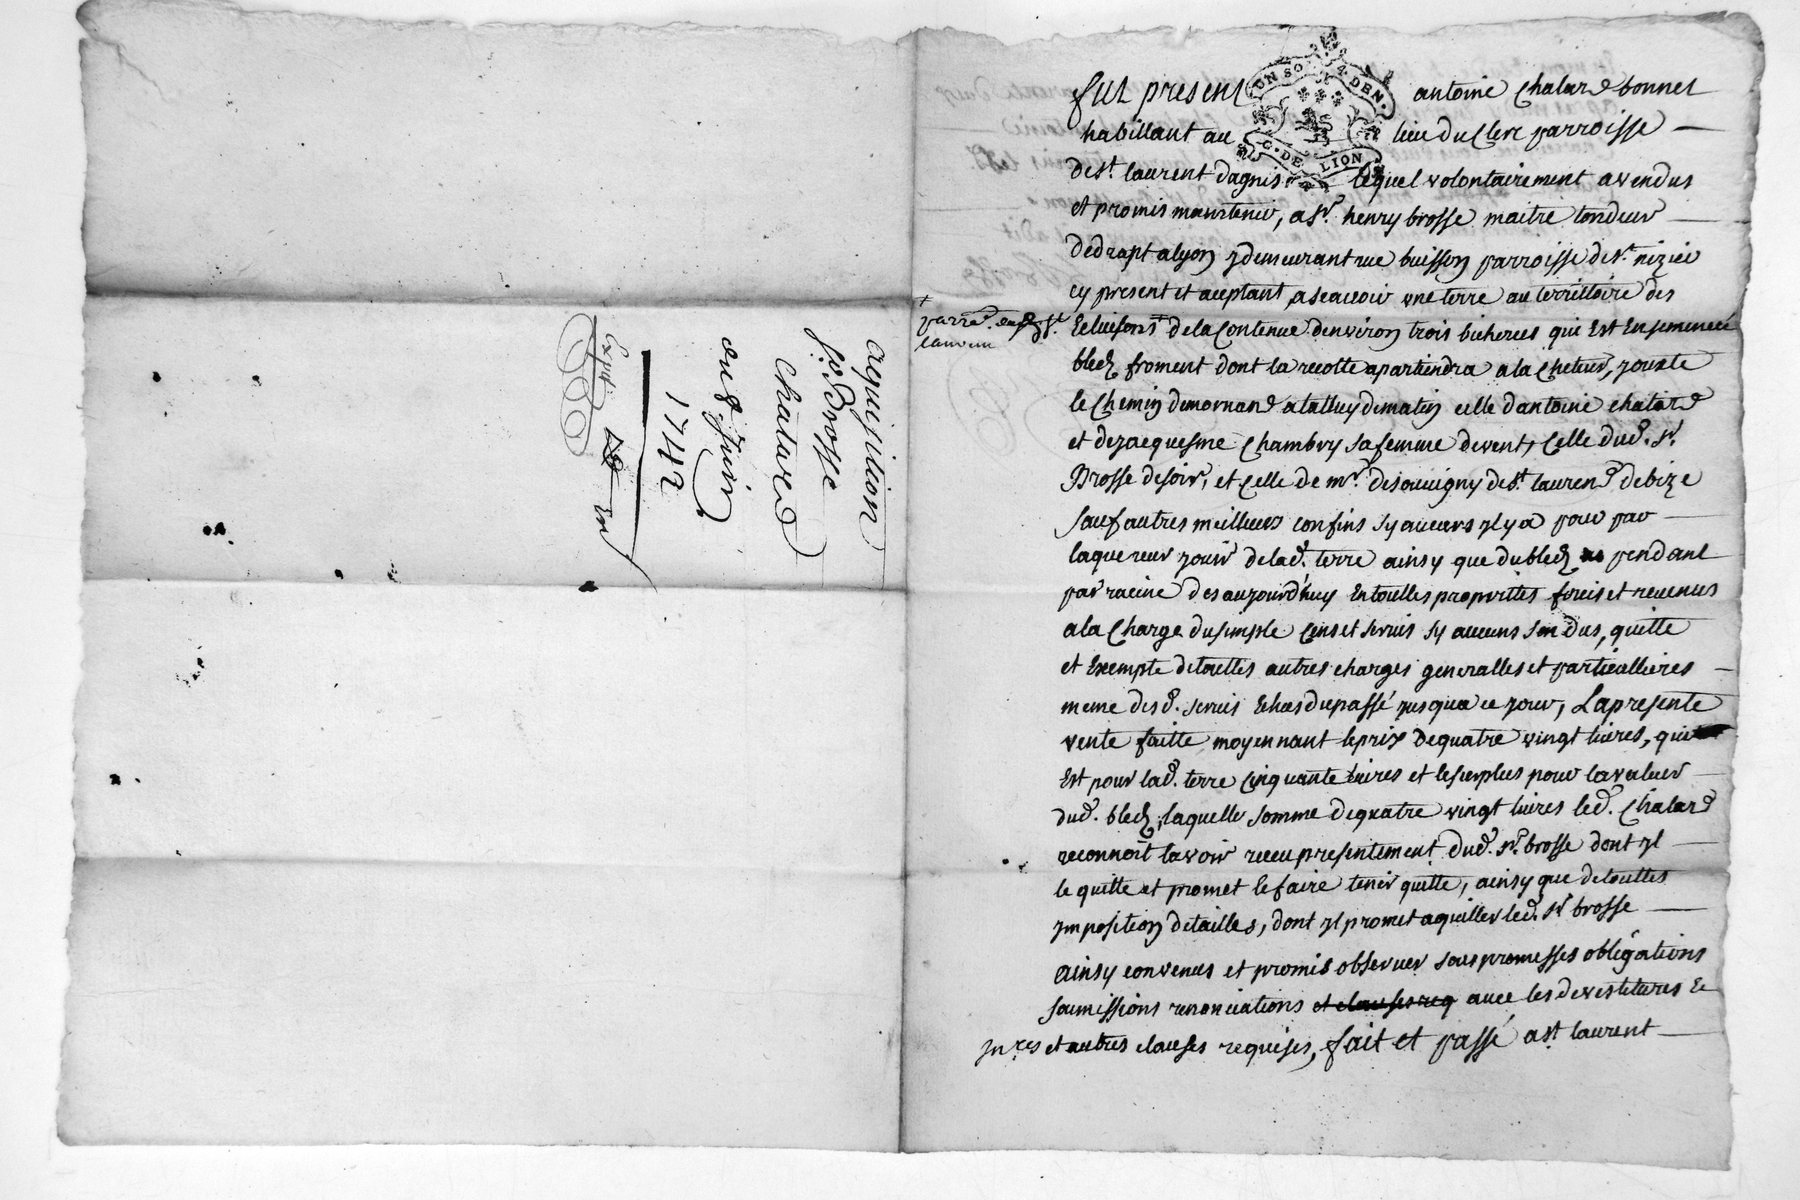 aquisition
sr. Brosse
Chalard
du 8. Juin
1742
Expié.
UN SO. 4. DEN.
G. DE LION
fut present antoine Chalard bonnet
habittant au lieu du Clerc parroisse
de st. laurent dagnis lequel volontairement a vendus
et promis maintenir, a sr. henry brosse maitre tondeur
de drapt a lyon y demeurant rue buisson parroisse de st. nizier
cy present et aceptant, a scavoir une terre au territtoire des
parre. st.
laurent
de la Contenue denviron trois bicherees qui Est Ensemencé
bled froment dont la recolte apartiendra a la Cheteur, jouxte
le Chemin de mornand a talluy de matin celle dantoine chalard
et de jacquesme Chambry sa femme de vent, Celle dud. sr.
Brosse de soir, et Celle de mr. de souvigny de st. laurend de bize
sauf autres meilleurs confins sy aucuns yl y a pour par
laquereur jouir de lad. terre ainsy que du bled pendant
par racine des aujourdhuy En touttes proprietes fruis et revenus
a la Charge du simple Cens et servis sy aucuns son dus, quitte
et Exempte de touttes autres charges generalles et particullieres
meme des d. servis Echus du passé jusqua ce jour, La presente
vente faitte moyennant le prix de quatre vingt livres, qui
Est pour lad. terre Cinquante livres et le surplus pour la valeur
dud. bled, laquelle somme de quatre vingt livres led. Chalard
reconnoit lavoir receu presentement dud. sr. brosse dont yl
le quitte et promet le faire tenir quitte, ainsy que de touttes
ymposition de tailles, dont yl promet aquitter led. sr brosse
ainsy convenus et promis observer sous promesses obligations
soumissions renonciations et clauses req avec les devestitures Et
ynres et autres clauses requises, fait et passé a st. laurent